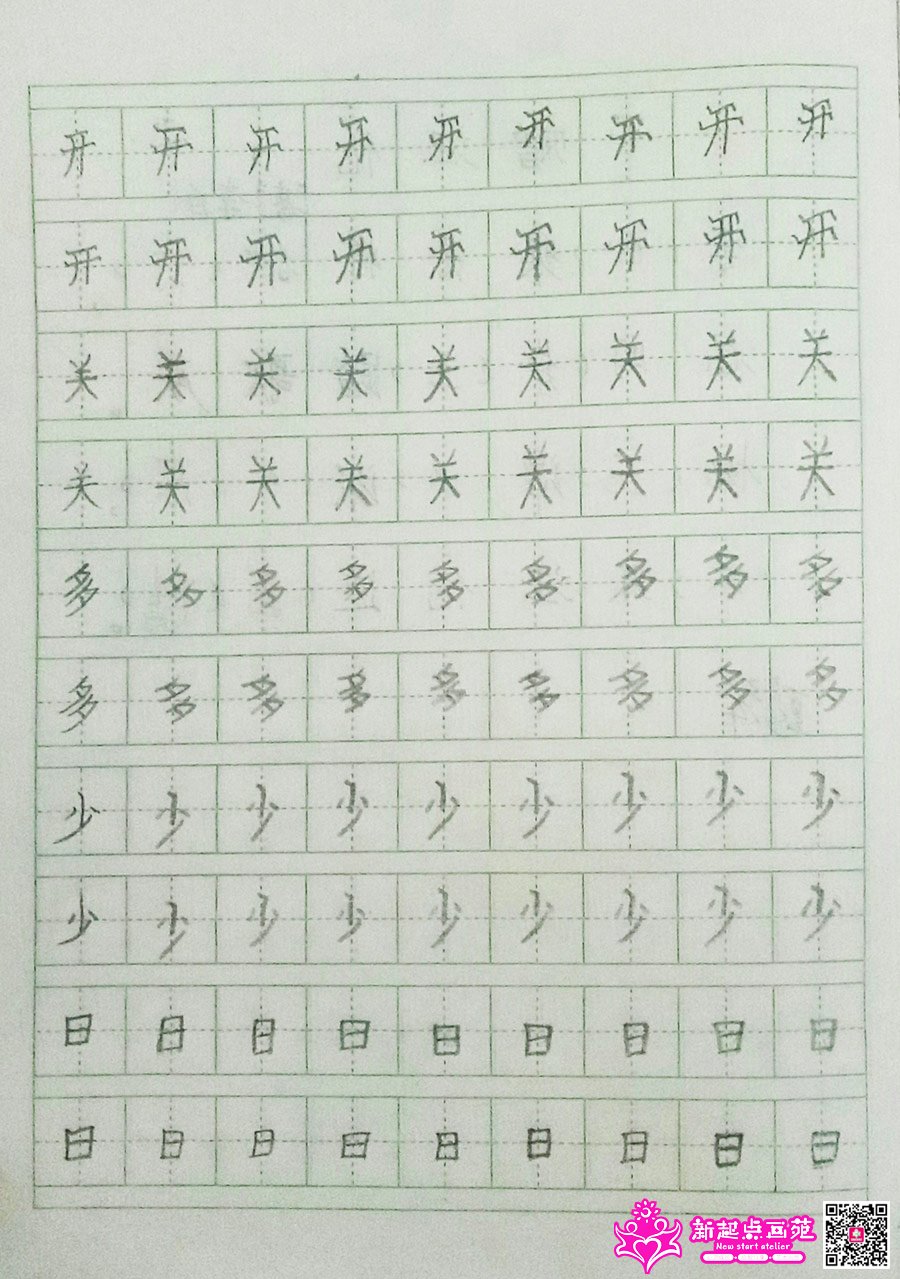 开开开开开开开开开
开开开开开开开开开
关关关关关关关关关
关关关关关关关关关
多多多多多多多多多
多多多多多多多多多
少少少少少少少少少
少少少少少少少少少
日日日日日日日日日
日日日日日日日日日
新起点画苑
New start atelier